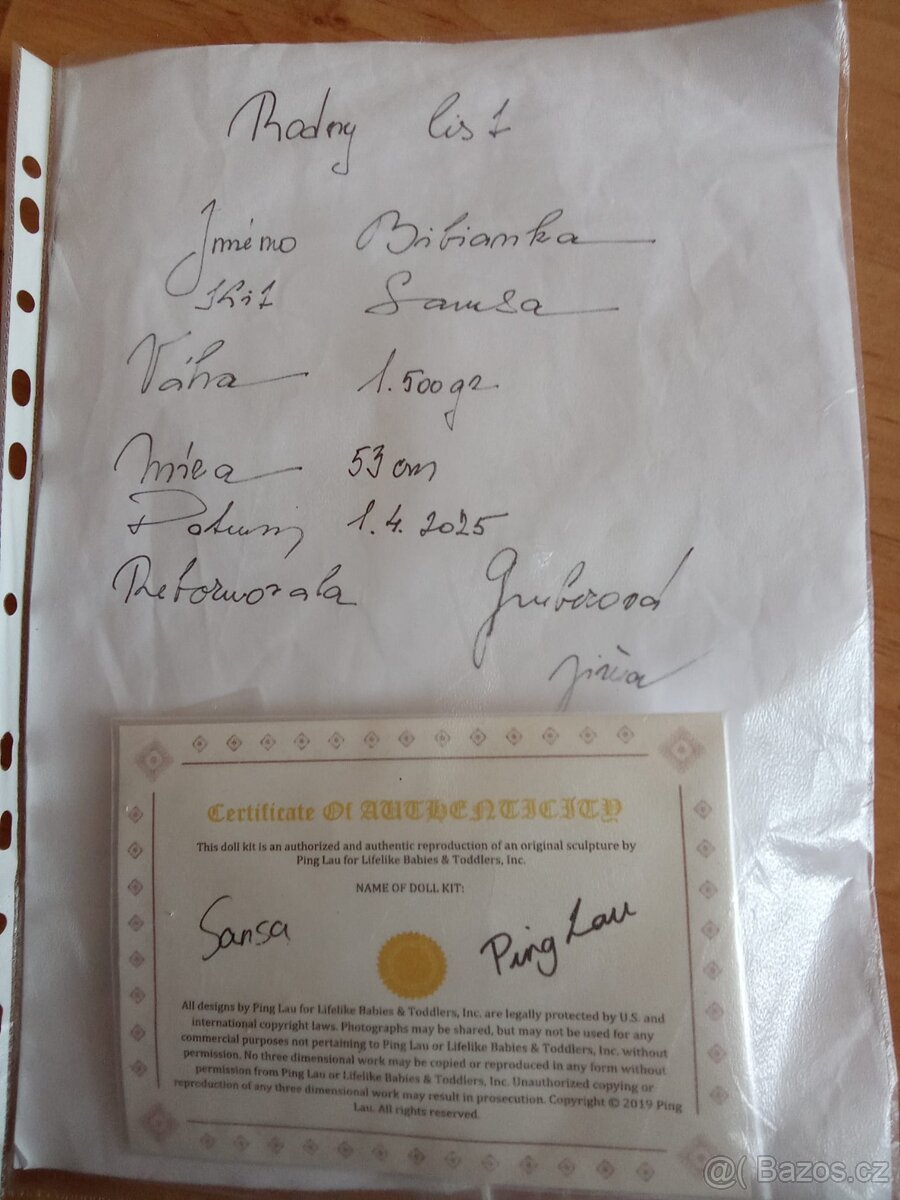 Rodny list
Jméno Bibianka
Kit Sansa
Váha 1.500gr
Míra 53 cm
Datum 1.4.2025
Rebornovala Gruberová
Jiřina
Certificate Of AUTHENTICITY
This doll kit is an authorized and authentic reproduction of an original sculpture by
Ping Lau for Lifelike Babies & Toddlers, Inc.
NAME OF DOLL KIT:
Sansa Ping Lau
All designs by Ping Lau for Lifelike Babies & Toddlers, Inc. are legally protected by U.S. and
international copyright laws. Photographs may be shared, but may not be used for any
commercial purposes not pertaining to Ping Lau or Lifelike Babies & Toddlers, Inc. without
permission. No three dimensional work may be copied or reproduced in any form without
permission from Ping Lau or Lifelike Babies & Toddlers, Inc. Unauthorized copying or
reproduction of any three dimensional work may result in prosecution. Copyright © 2019 Ping
Lau. All rights reserved.
@( Bazos.cz